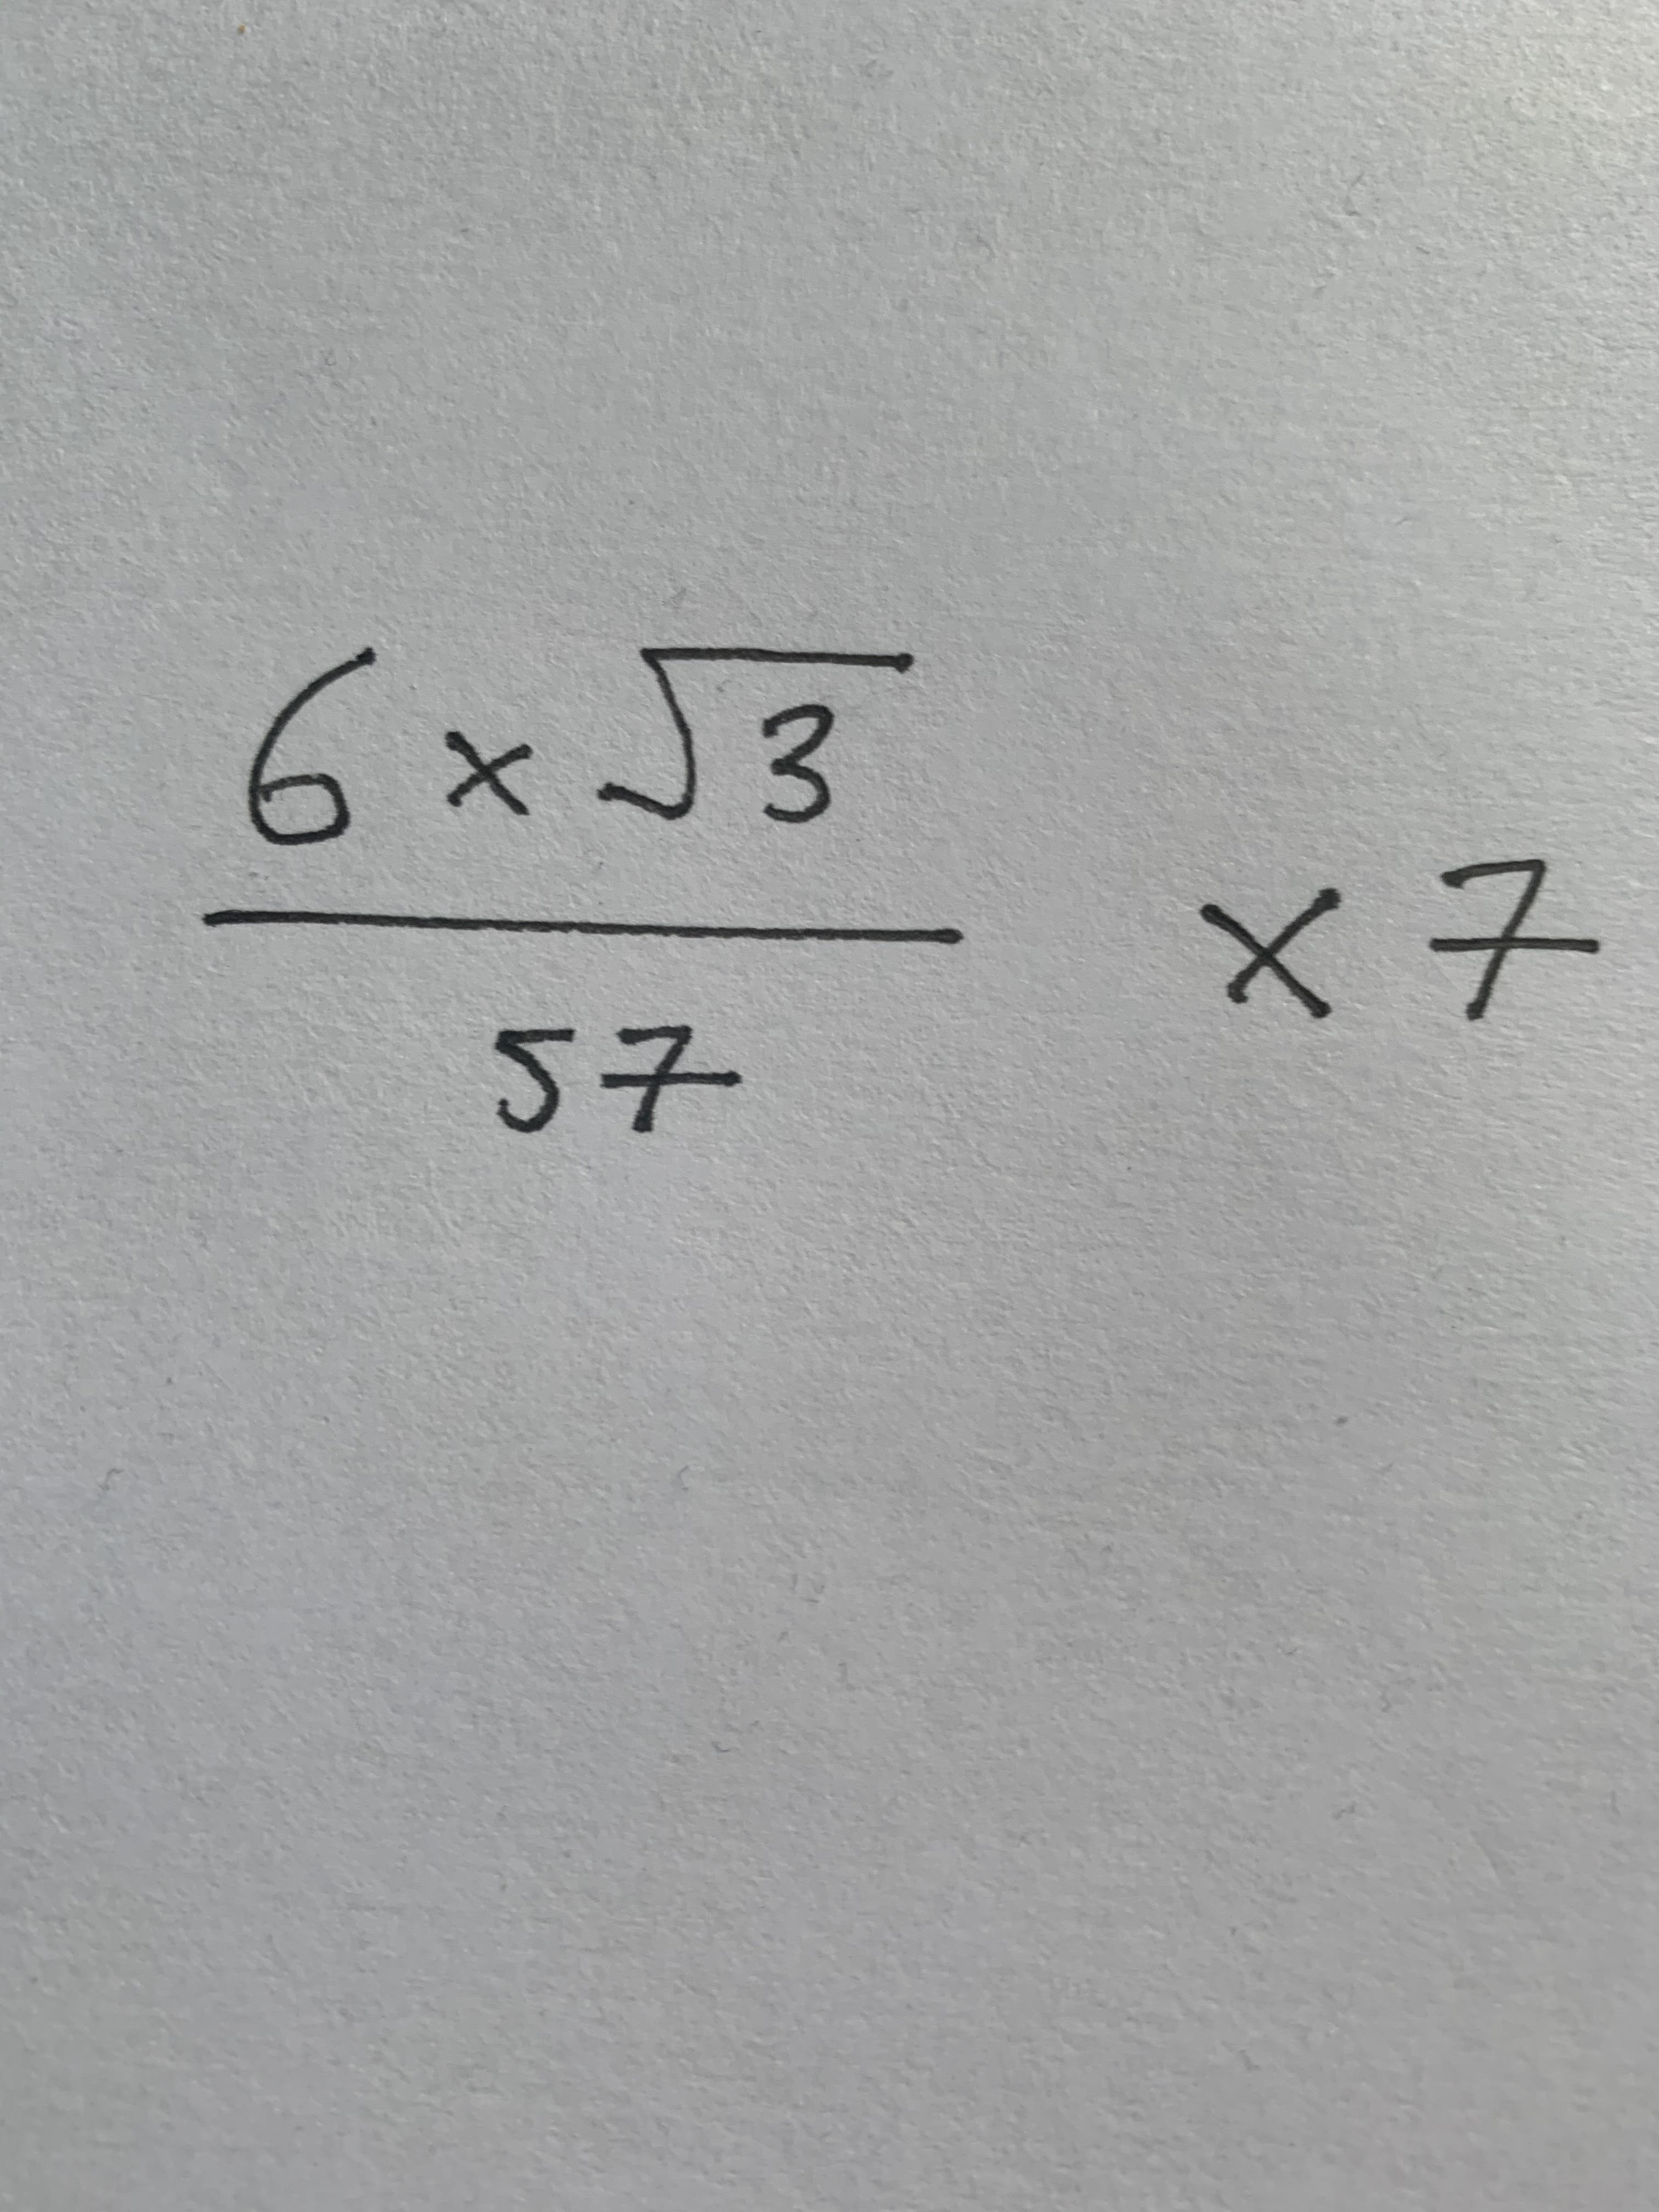 6 × √3
57
× 7